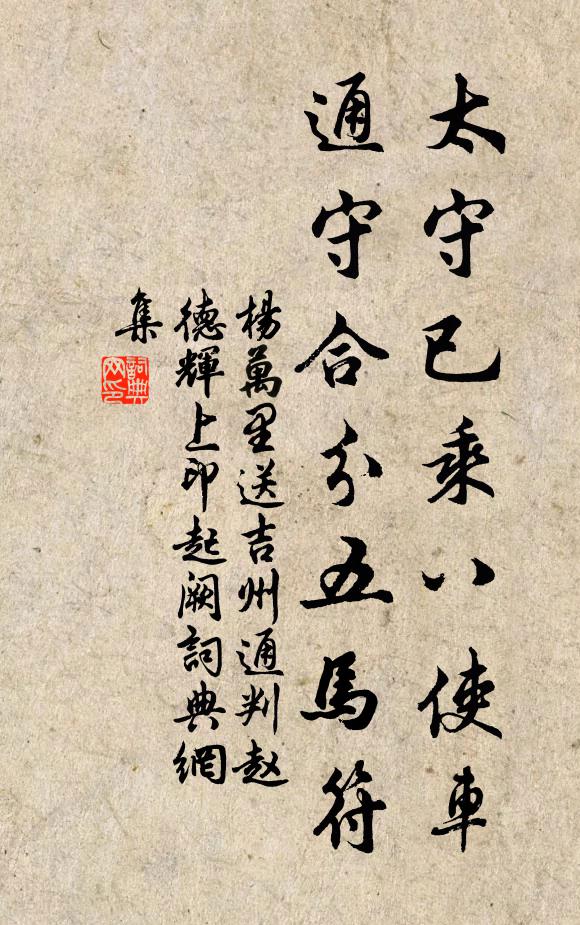 太守已乘八使車
通守合分五馬符
楊萬里送吉州通判赵
德輝上印起阙詞典網
集
詞典网印